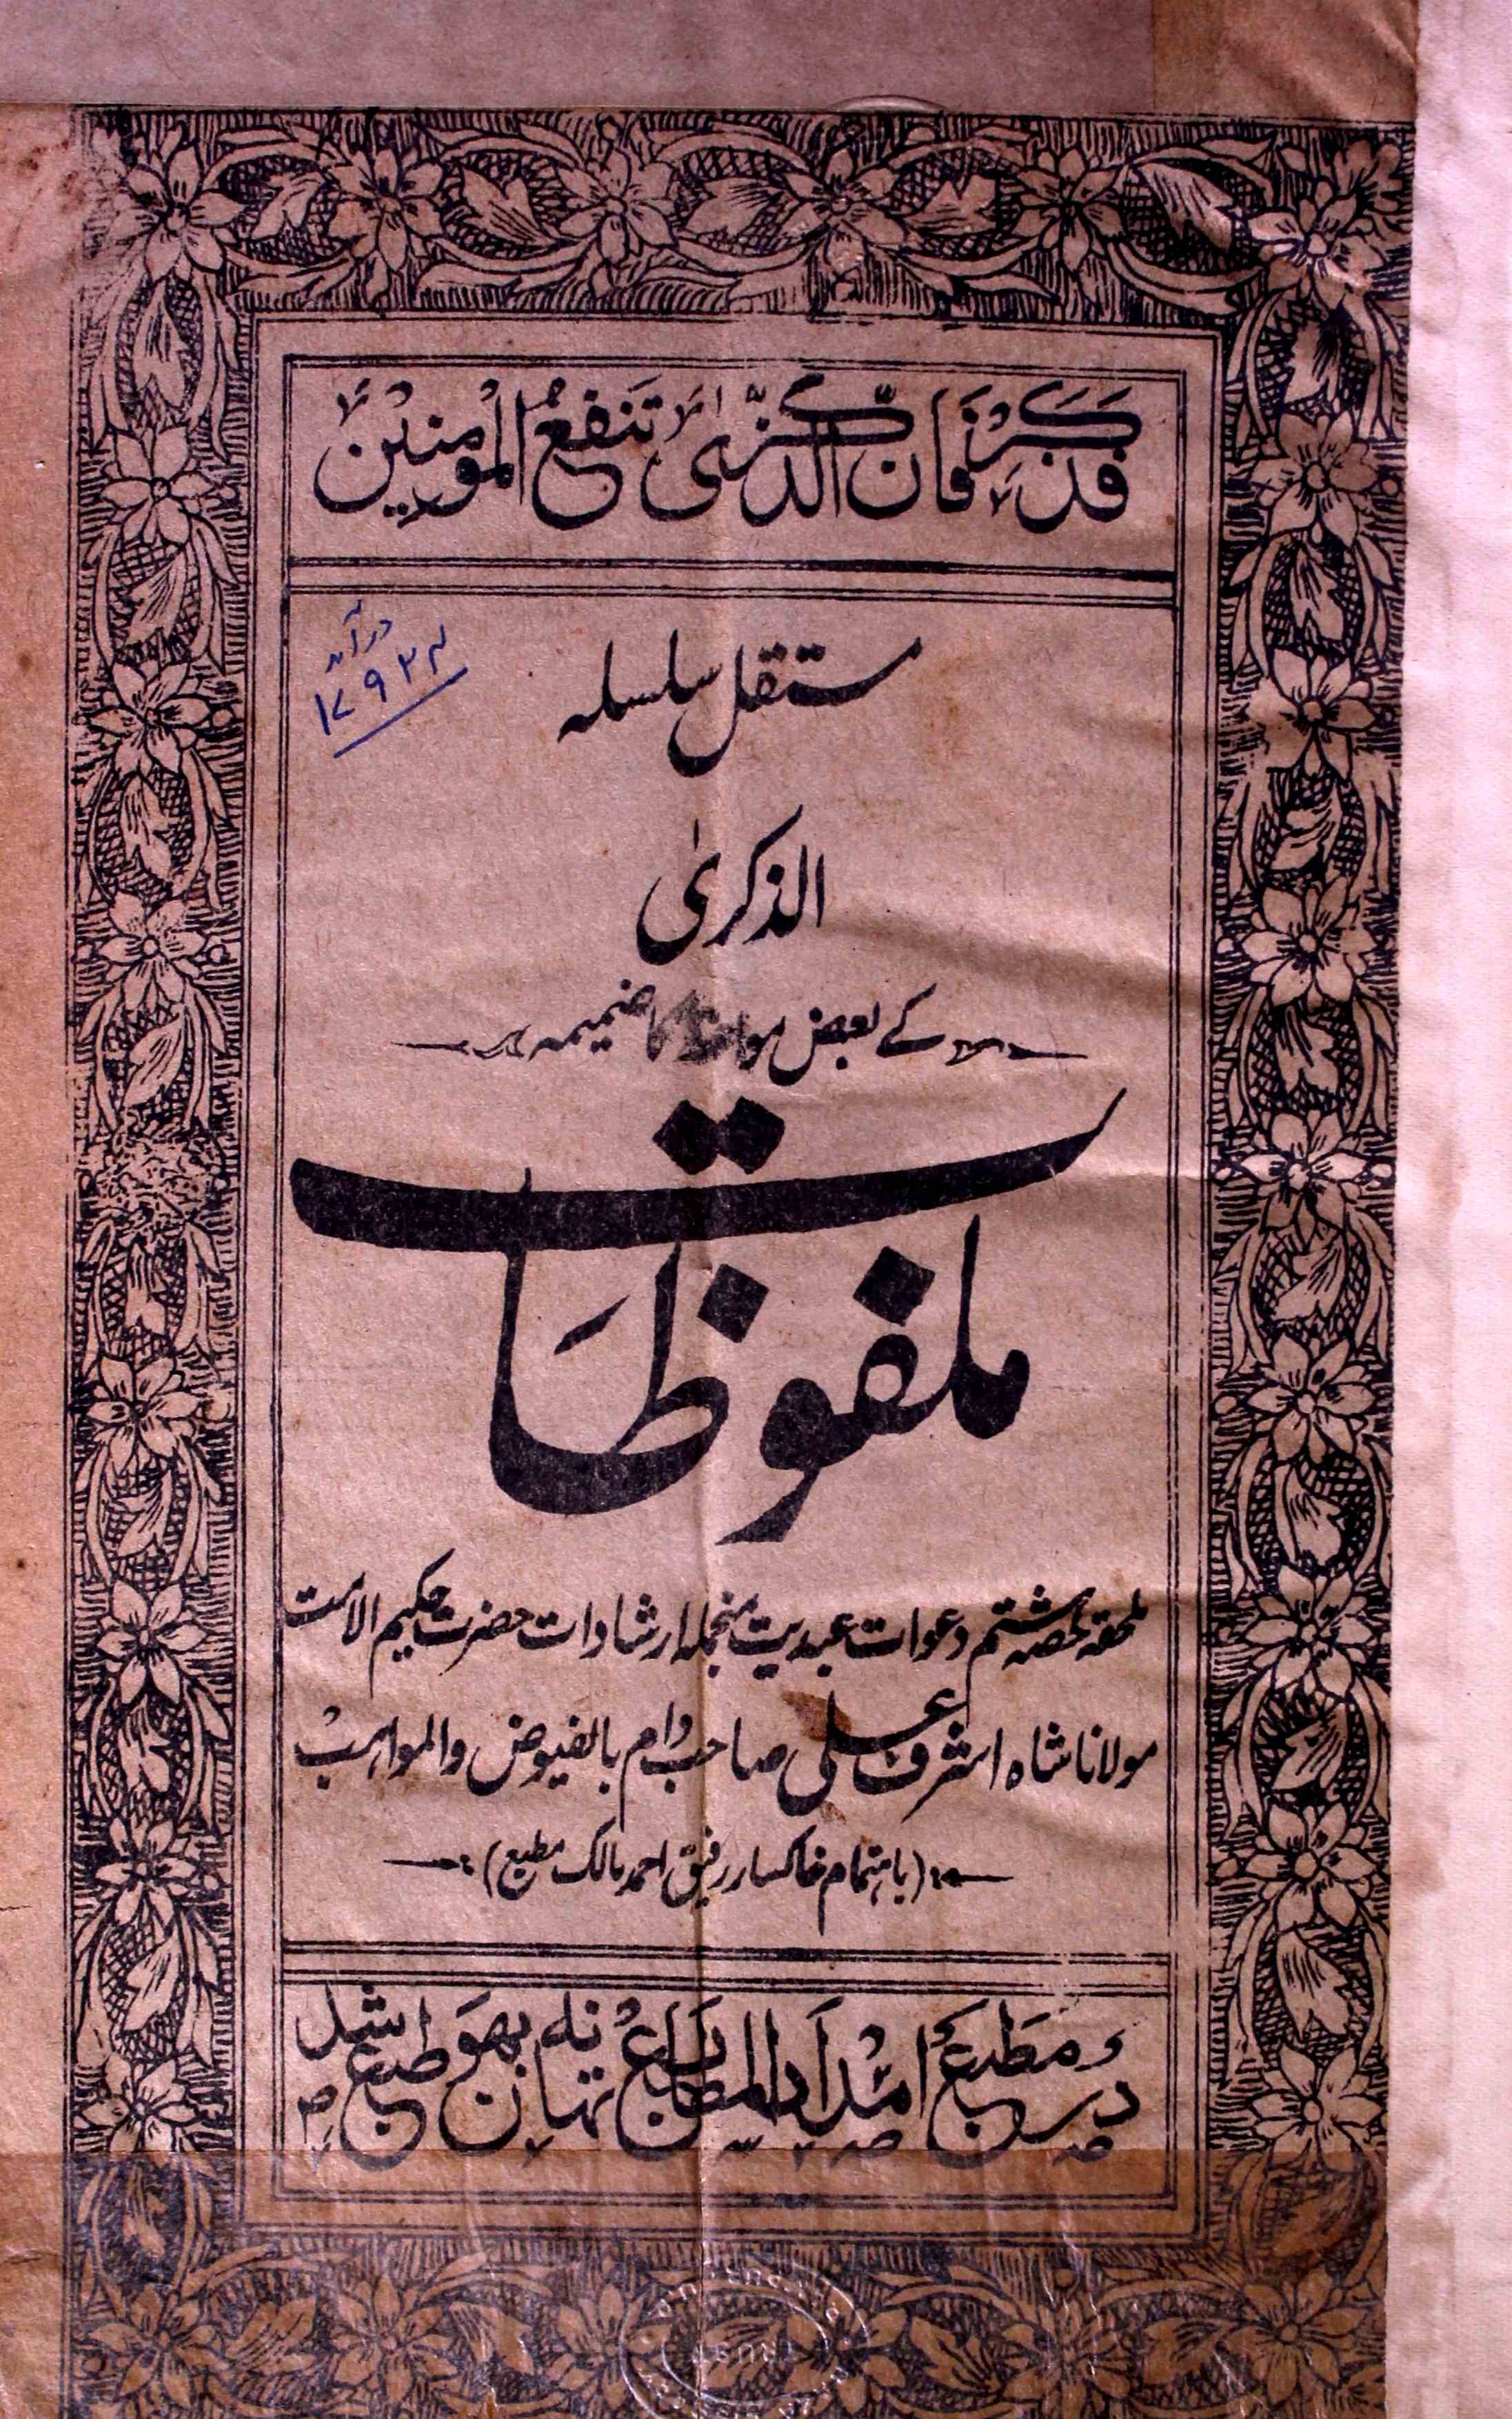 فذکر فان الذکریٰ تنفع المومنین
درآمد
۱۷۹۲۴
مستقل سلسلہ
الذکریٰ
کے بعض مواعظ کا ضمیمہ
ملفوظات
ملحقہ حصہ ہشتم دعوات عبدیت منجملہ ارشادات حضرت حکیم الامت
مولانا شاہ اشرف علی صاحب دام بالفیوض والمواہب
(باہتمام خاکسار رفیق احمد مالک مطبع)
در مطبع امداد المطابع تھانہ بھون طبع شد